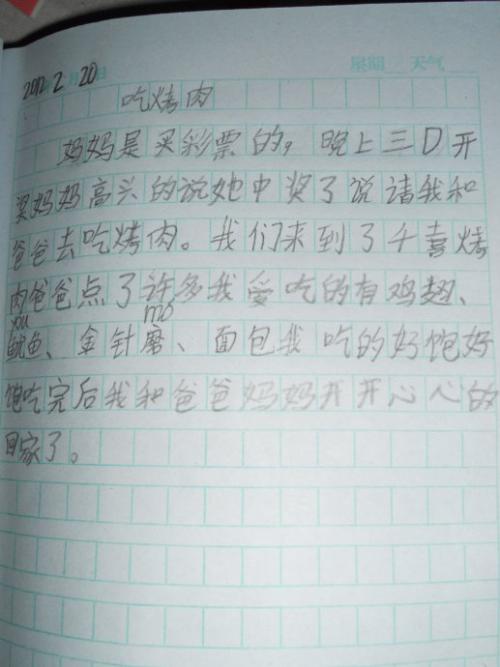 2012 2月20日 星期 天气
吃烤肉
妈妈是买彩票的，晚上三D开
奖妈妈高兴的说她中奖了说请我和
爸爸去吃烤肉。我们来到了千喜烤
肉爸爸点了许多我爱吃的有鸡翅、
you mo
鱿鱼、金针磨、面包我吃的好饱好
饱吃完后我和爸爸妈妈开开心心的
回家了。